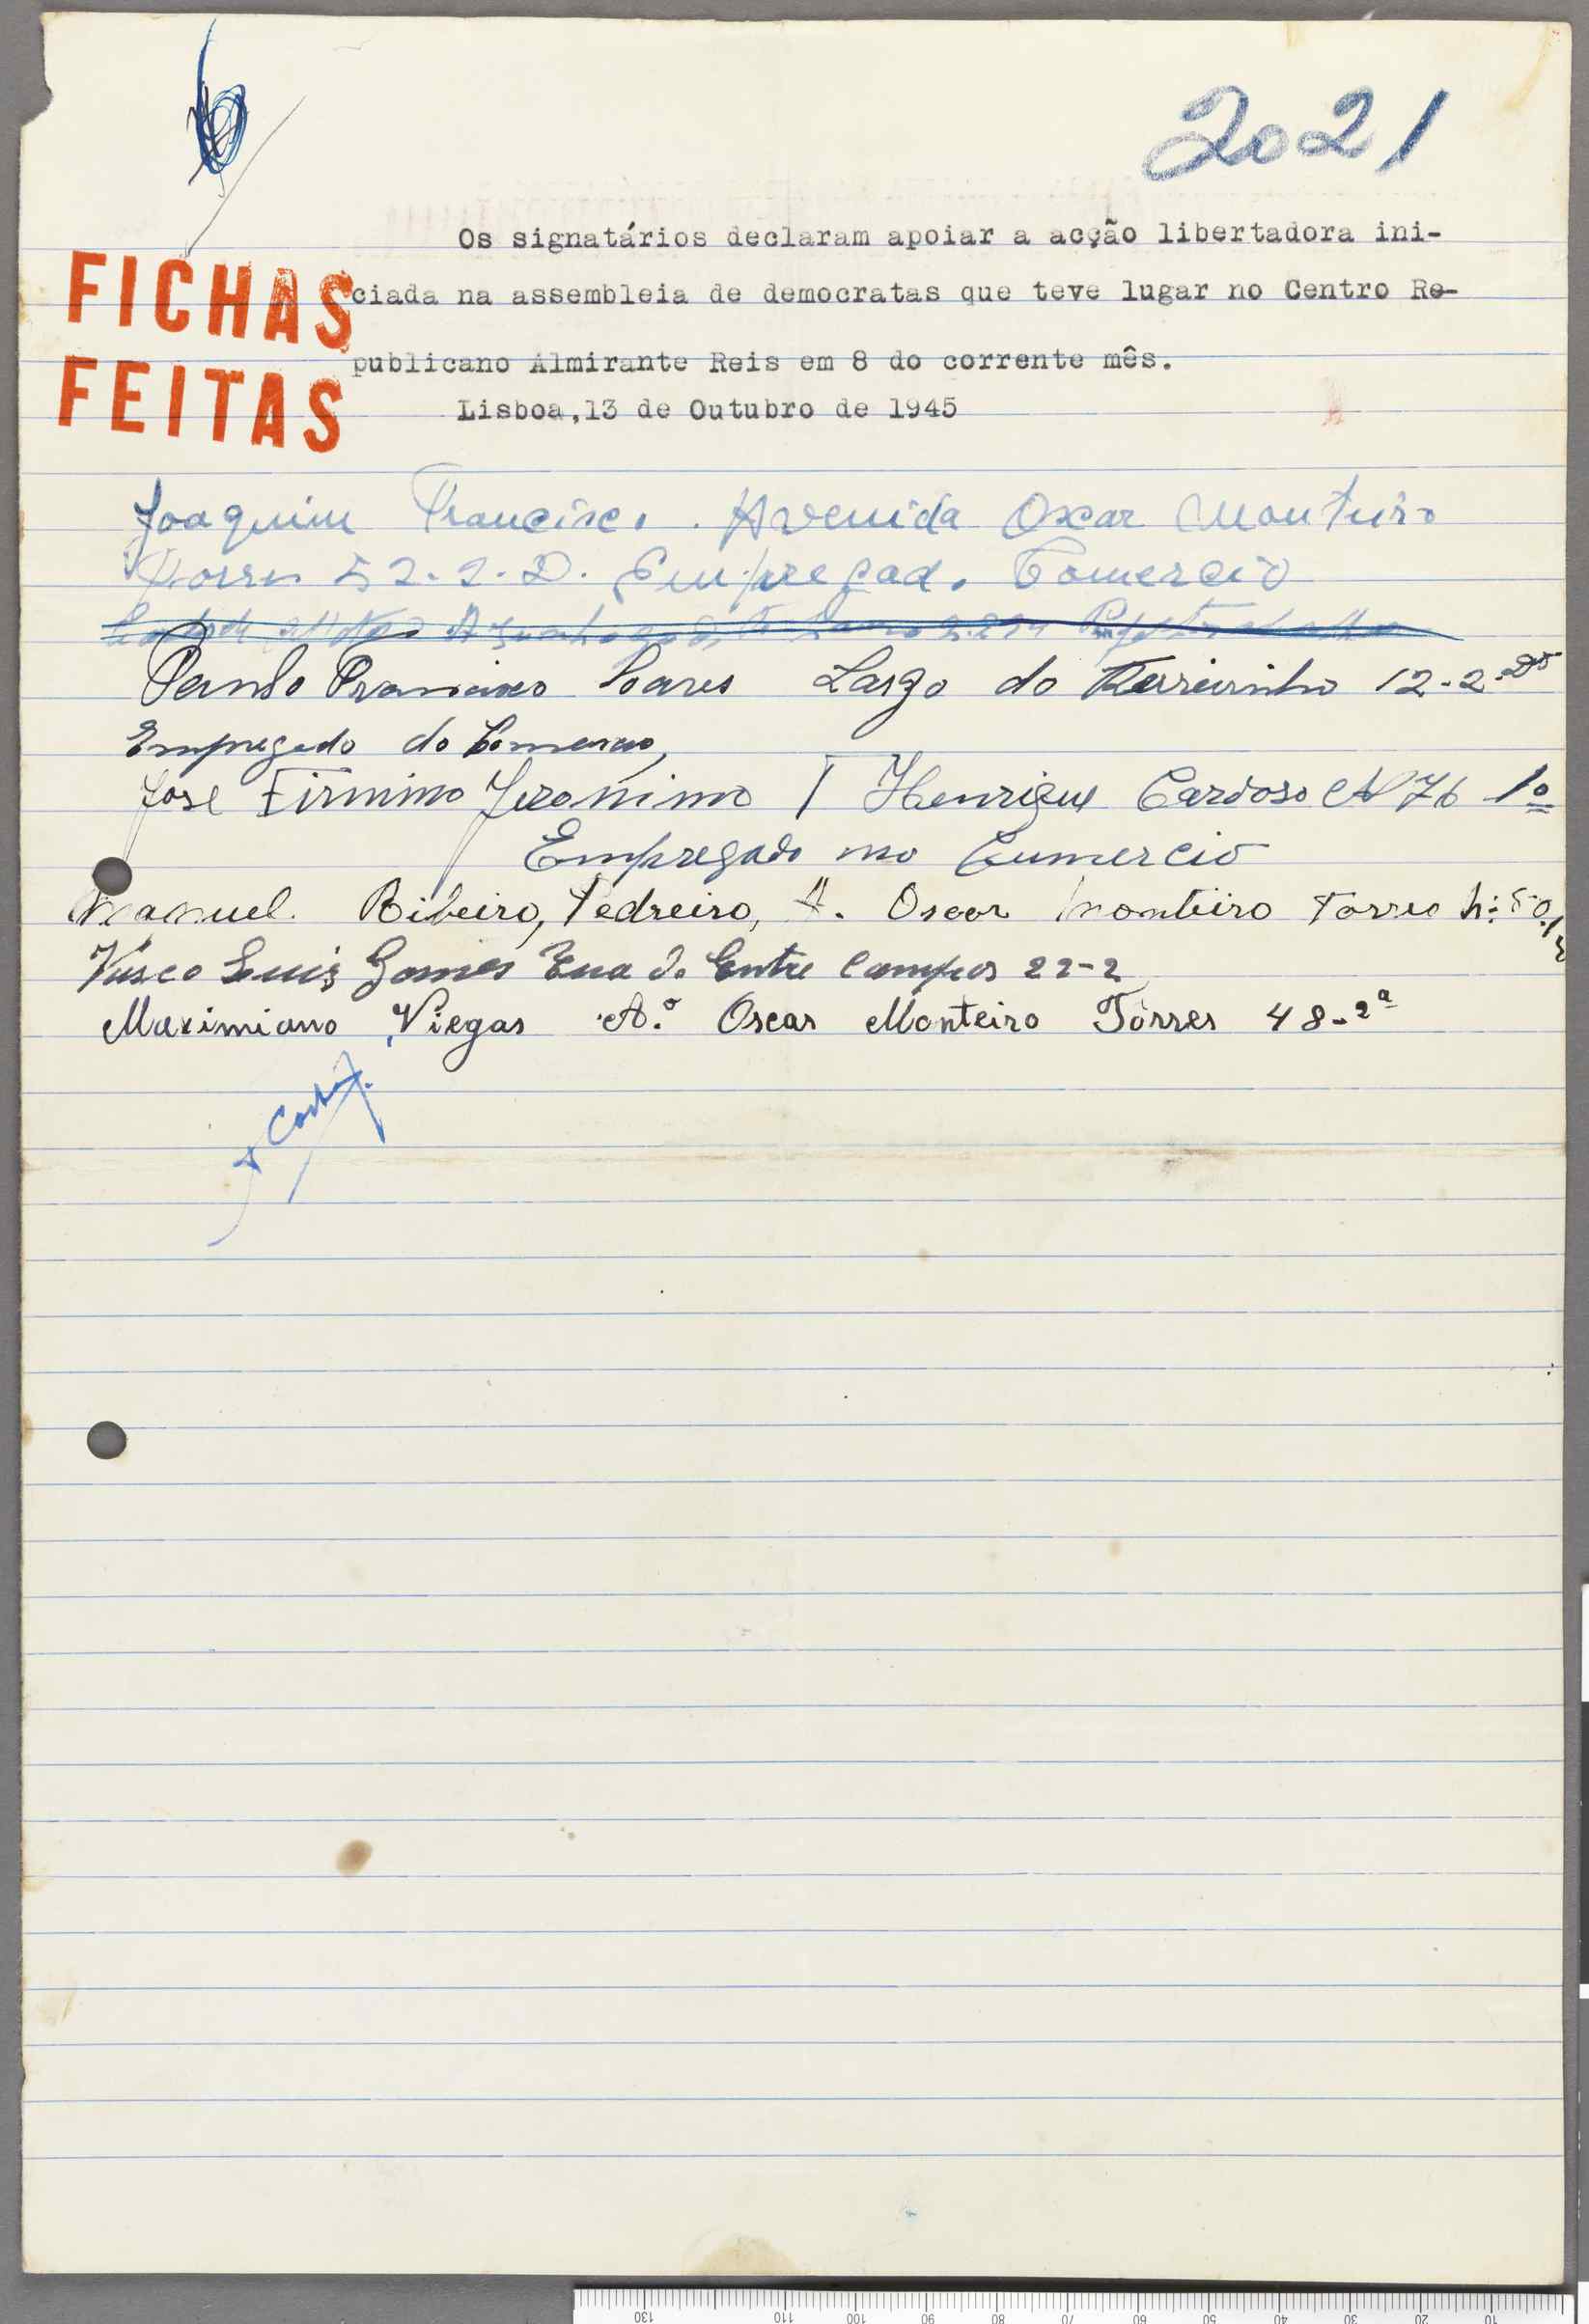 2021
Os signatários declaram apoiar a acção libertadora ini-
FICHAS
ciada na assembleia de democratas que teve lugar no Centro Re-
FEITAS
publicano Almirante Reis em 8 do corrente mês.
Lisboa,13 de Outubro de 1945
Joaquim Francisco. Avenida Oscar Monteiro
Torres 52-2-D. Empregado Comercio
Francisco Soares Largo do Terreirinho 12-2-Dto
Empregado do Comercio
José Firmino Jeronimo T Henrique Cardoso Nº 76 1º
Empregado no Cumercio
Manuel Ribeiro, Pedreiro, A. Oscar Monteiro Torres
Vasco Luis Gomes Rua de Entre Campos 22-2
Maximiano Viegas Aº Oscar Monteiro Tôrres 48-2ª
Costa
130 110 100 90 80 70 60 50 40 30 20 10